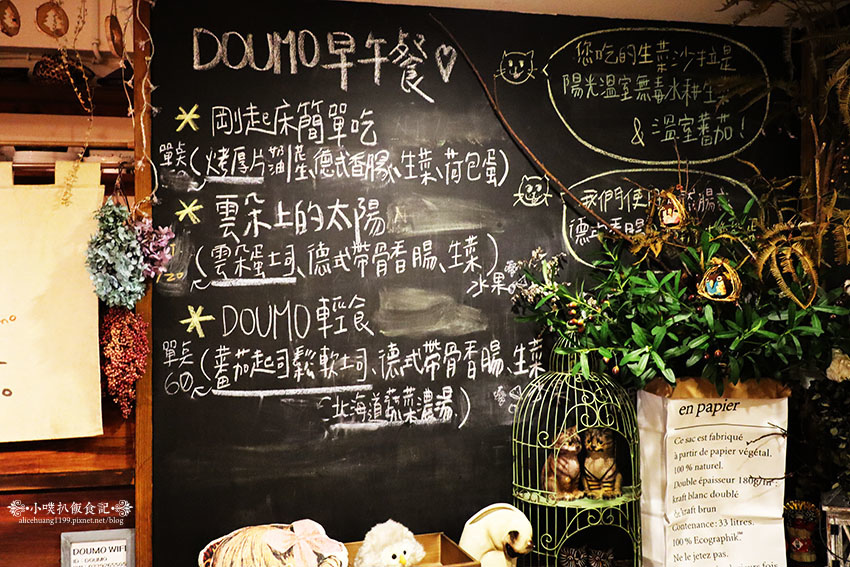 DOUMO早午餐♡
* 剛起床簡單吃
單點 (烤厚片奶酥、德式香腸、生菜、荷包蛋)
* 雲朵上的太陽
120 (雲朵蛋土司、德式帶骨香腸、生菜)
水果
* DOUMO輕食
單點 60 (蕃茄起司鬆軟土司、德式帶骨香腸、生菜、
北海道蔬菜濃湯)
您吃的生菜沙拉是
陽光溫室無毒水耕生菜
& 溫室蕃茄!
我們使用
德式香腸
en papier
Ce sac est fabriqué
à partir de papier végétal,
100 % naturel.
Double épaisseur 180g/m² :
kraft blanc doublé
de kraft brun
Contenance : 33 litres.
100 % Ecographik™
Ne le jetez pas.
小噗扒飯食記
alicehuang1199.pixnet.net/blog
DOUMO WIFI